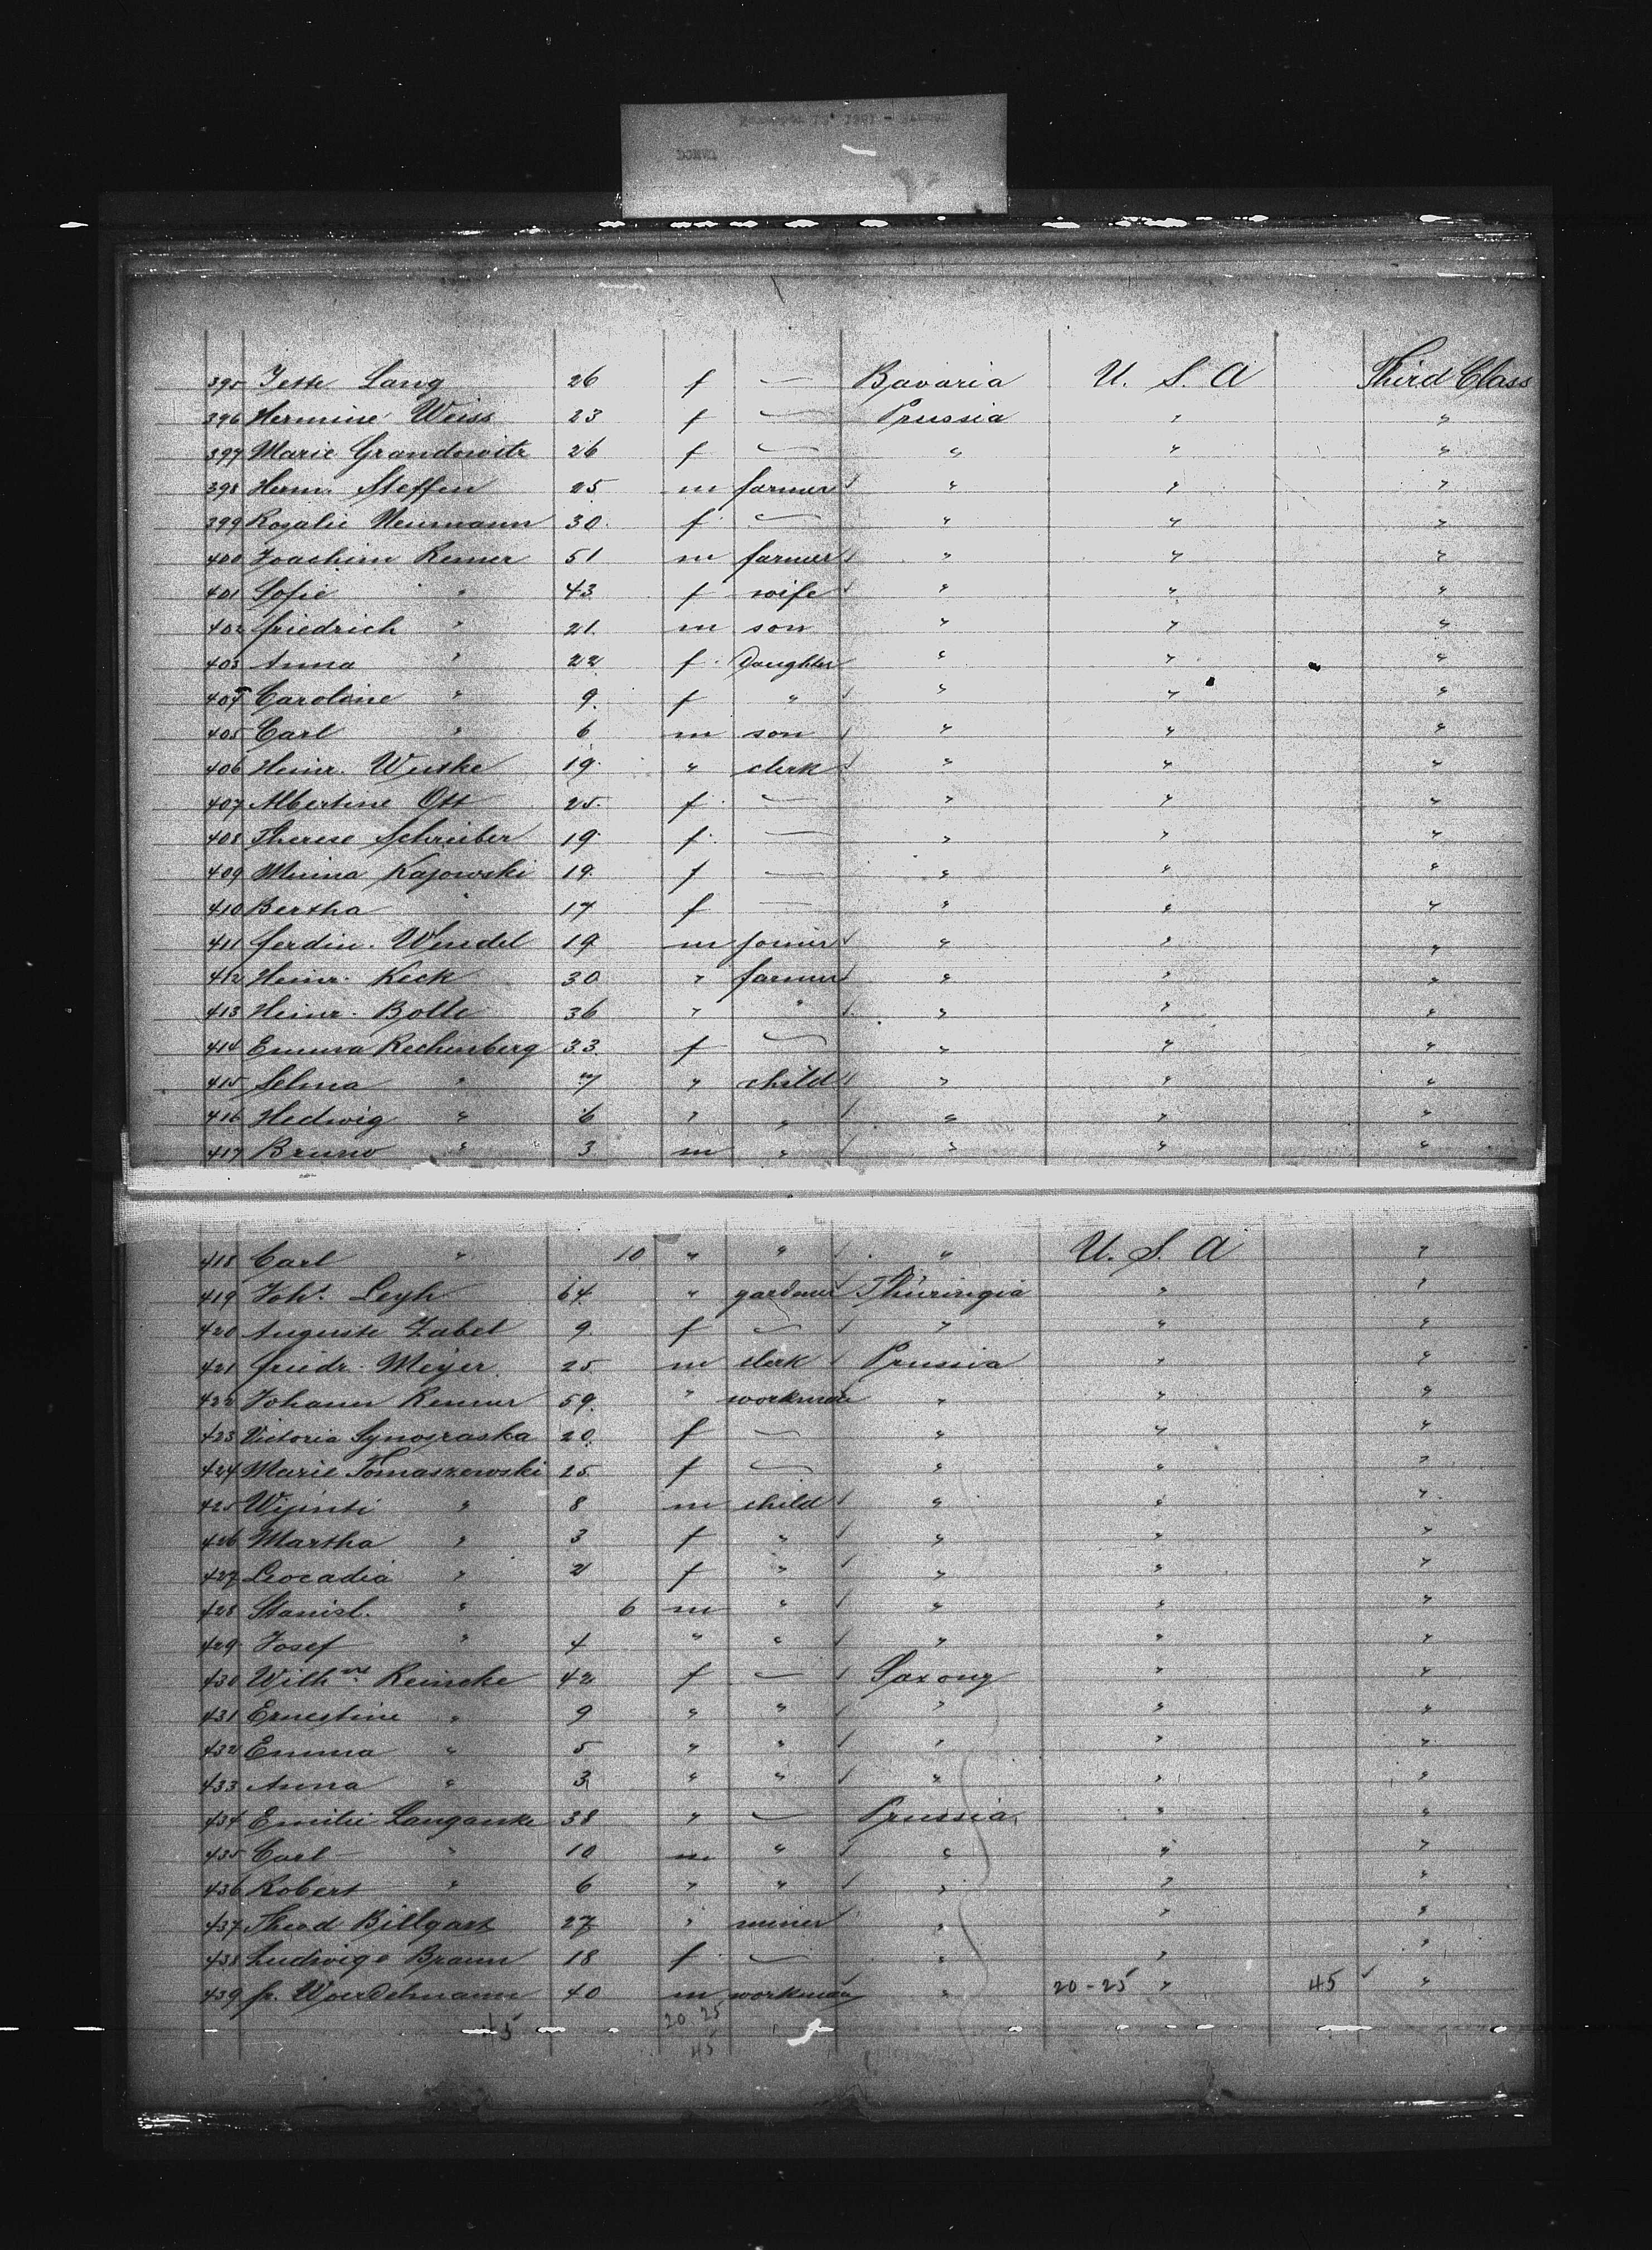 DONAU
395 Jette Lang 26 f — Bavaria U. S. A Third Class
396 Hermine Weiss 23 f — Prussia " "
397 Marie Grandowitz 26 f — " " "
398 Herm. Steffen 25 m farmer " " "
399 Rosalie Neumann 30 f — " " "
400 Joachim Remer 51 m farmer " " "
401 Sofie " 43 f wife " " "
402 Friedrich " 21 m son " " "
403 Anna " 22 f Daughter " " "
404 Caroline " 9 f " " " "
405 Carl " 6 m son " " "
406 Heinr. Wuske 19 " clerk " " "
407 Albertine Ott 25 f — " " "
408 Therese Schreiber 19 f — " " "
409 Minna Kajowski 19 f — " " "
410 Bertha " 17 f — " " "
411 Ferdin. Wendel 19 m joiner " " "
412 Heinr. Keck 30 " farmer " " "
413 Heinr. Bolle 36 " " " " "
414 Emma Rechenberg 33 f — " " "
415 Selma " 7 " child " " "
416 Hedwig " 6 " " " " "
417 Bruno " 3 m " " " "
418 Carl " 10 " " " U. S. A "
419 Joh. Leyh 64 " gardener Thüringia " "
420 Auguste Zabel 9 f — " " "
421 Friedr. Meyer 25 m clerk Prussia " "
422 Johann Remer 59 " workman " " "
423 Victoria Synograska 20 f — " " "
424 Marie Tomaszewski 25 f — " " "
425 " 8 m child " " "
426 Martha " 3 f " " " "
427 Leocadia " 2 f " " " "
428 Stanisl. " 6 m " " " "
429 Josef " 4 " " " " "
430 Wilh.ne Reincke 42 f — Saxony " "
431 Ernestine " 9 " " " " "
432 Emma " 5 " " " " "
433 Anna " 3 " " " " "
434 Emilie Langanke 38 " — Prussia " "
435 Carl " 10 m " " " "
436 Robert " 6 " " " " "
437 Theod Billgart 27 " miner " " "
438 Ludwige Braun 18 f — " " "
439 Fr. Woerdehmann 40 m workman " 20-25 " 45 "
45 20 25
45